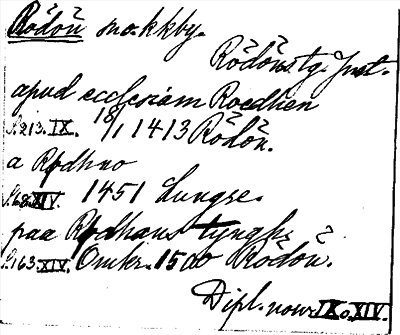 Rödön sn o. kkby.
Rödöns tg. Jmt.
apud ecclesiam Roedhen
S. 213. IX. 18/1 1413 Rödön.
a Rødhno
S. 68. XIV. 1451 Lungre.
paa Rødhans tynghr
S. 163. XIV. Omkr. 1500 Rödön.
Dipl. norv. IX o. XIV.